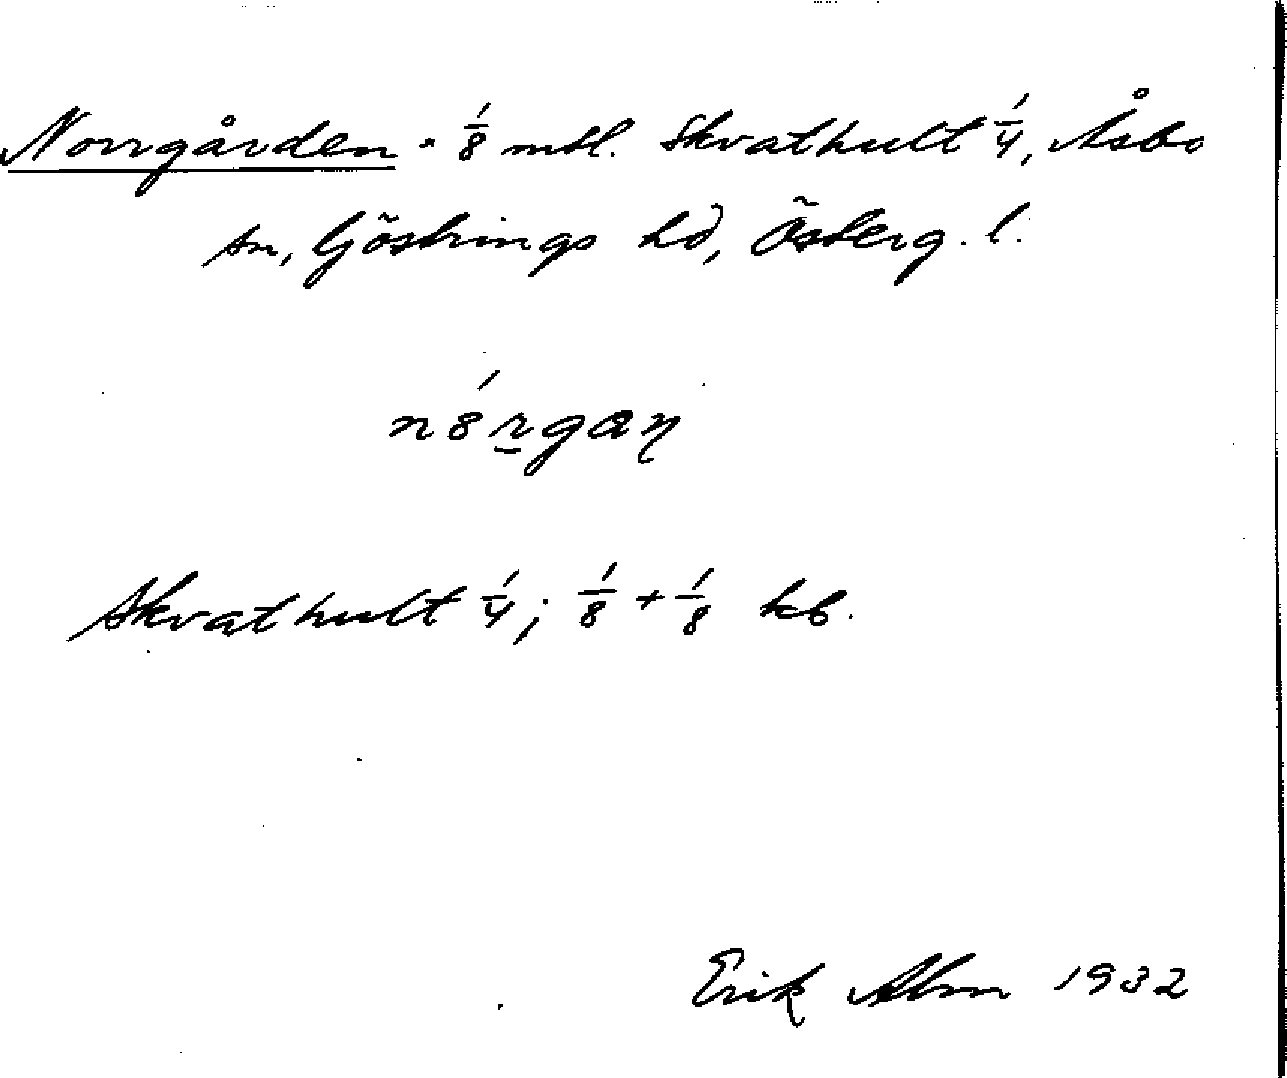 Norrgården . 1/8 mtl. Skvathult 1/4, Åsbo
sn, Göstrings hd, Österg. l.
Skvathult 1/4; 1/8 + 1/8 kb.
Erik Alm 1932